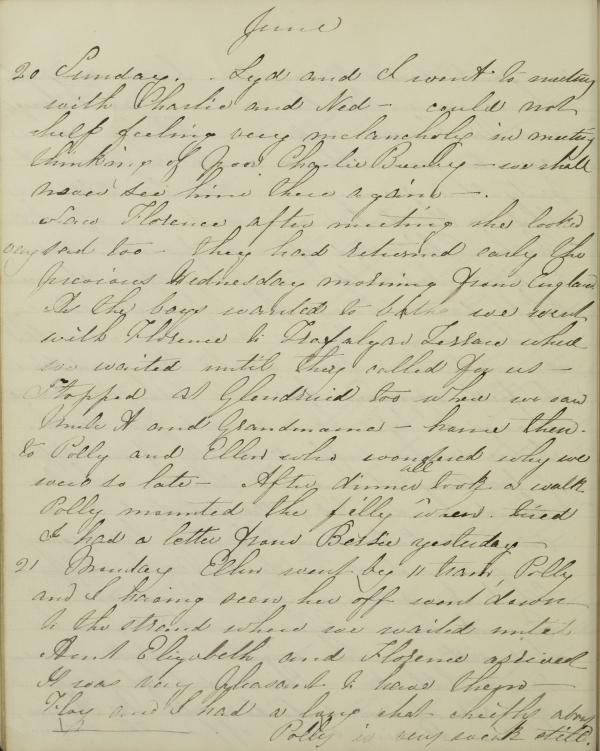 June
20 Sunday. . Lyd and I went to meeting
with Charlie and Ned - could not
help feeling very melancholy in meeting
thinking of poor Charlie - we shall
never see him there again - .
Saw Florence after meeting she looked
very sad too - they had returned early the
previous Wednesday morning from England
As the boys wanted to bathe we went
with Florence to Trafalgar Terrace where
we waited until they called for us -
Stopped at Glendruid too where we saw
Uncle A and Grandmama - home then
to Polly and Ellen who wondered why we
were so late - After dinner all took a walk
Polly mounted the filly when tired
I had a letter from Bessie yesterday
21 Monday Ellen went by 11 train, Polly
and I having seen her off went down
to the strand where we waited until
Aunt Elizabeth and Florence arrived
It was very pleasant to have them -
Floy and I had a long chat chiefly abroad
Polly is very weak still.